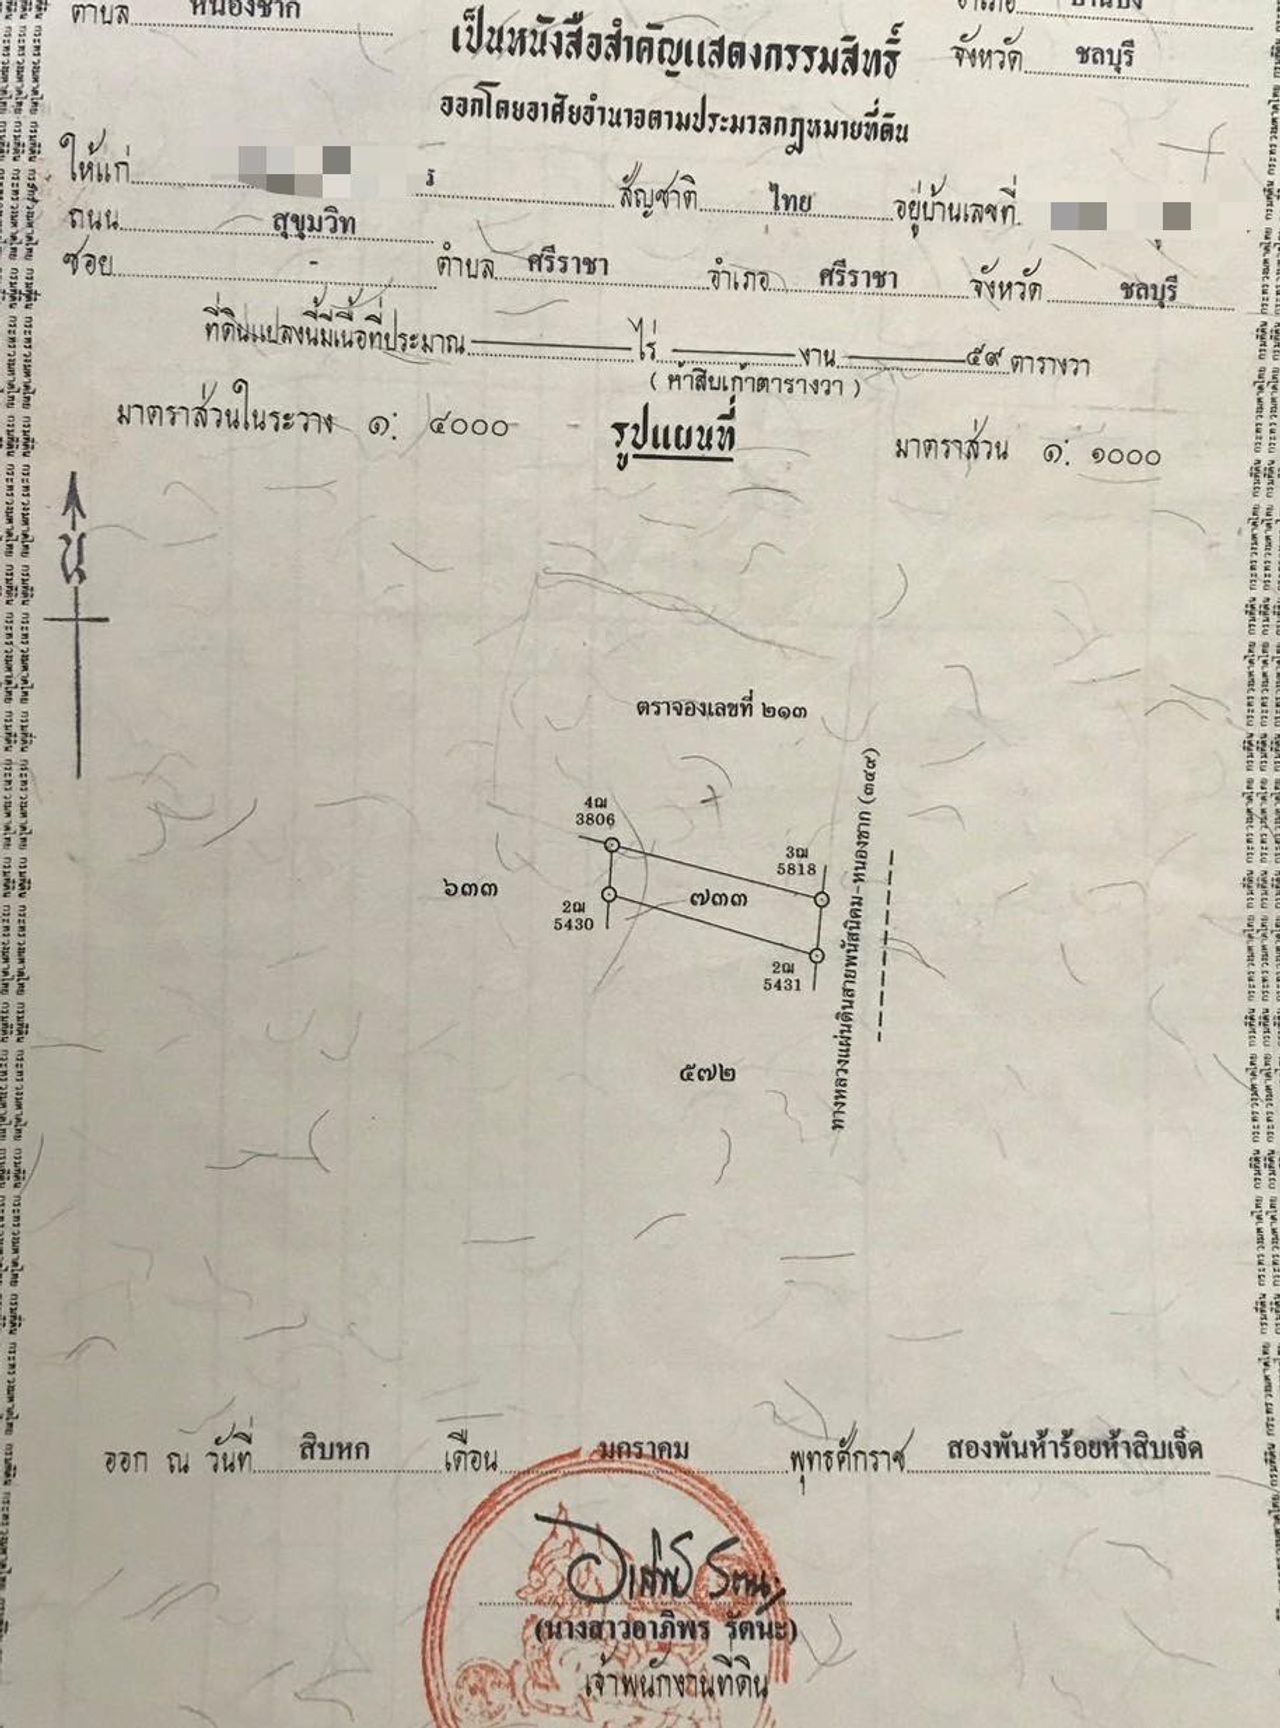 ตำบล หนองชาก อำเภอ บ้านบึง
เป็นหนังสือสำคัญแสดงกรรมสิทธิ์ จังหวัด ชลบุรี
ออกโดยอาศัยอำนาจตามประมวลกฎหมายที่ดิน
ให้แก่ สัญชาติ ไทย อยู่บ้านเลขที่
ถนน สุขุมวิท
ซอย - ตำบล ศรีราชา อำเภอ ศรีราชา จังหวัด ชลบุรี
ที่ดินแปลงนี้มีเนื้อที่ประมาณ ไร่ งาน ๕๙ ตารางวา
( ห้าสิบเก้าตารางวา )
มาตราส่วนในระวาง ๑: ๔๐๐๐ รูปแผนที่ มาตราส่วน ๑: ๑๐๐๐
น
ตราจองเลขที่ ๒๑๓
ทางหลวงแผ่นดินสายพนัสนิคม-หนองชาก (๓๔๙)
4ฌ
3806
3ฌ
5818
๖๓๓
๗๓๓
2ฌ
5430
2ฌ
5431
๕๗๒
ออก ณ วันที่ สิบหก เดือน มกราคม พุทธศักราช สองพันห้าร้อยห้าสิบเจ็ด
(นางสาวอาภิพร รัตนะ)
เจ้าพนักงานที่ดิน